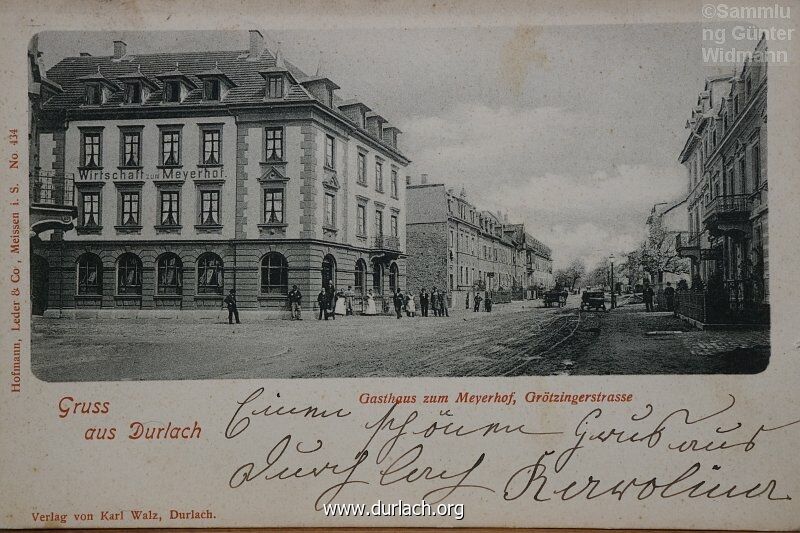 ©Sammlu
ng Günter
Widmann
Wirtschaft zum Meyerhof.
Hofmann, Leder & Co., Meissen i. S. No 434
Gasthaus zum Meyerhof, Grötzingerstrasse
Gruss
aus Durlach
Einen schönen Gruß aus
Durlach
Karolina
Verlag von Karl Walz, Durlach.
www.durlach.org